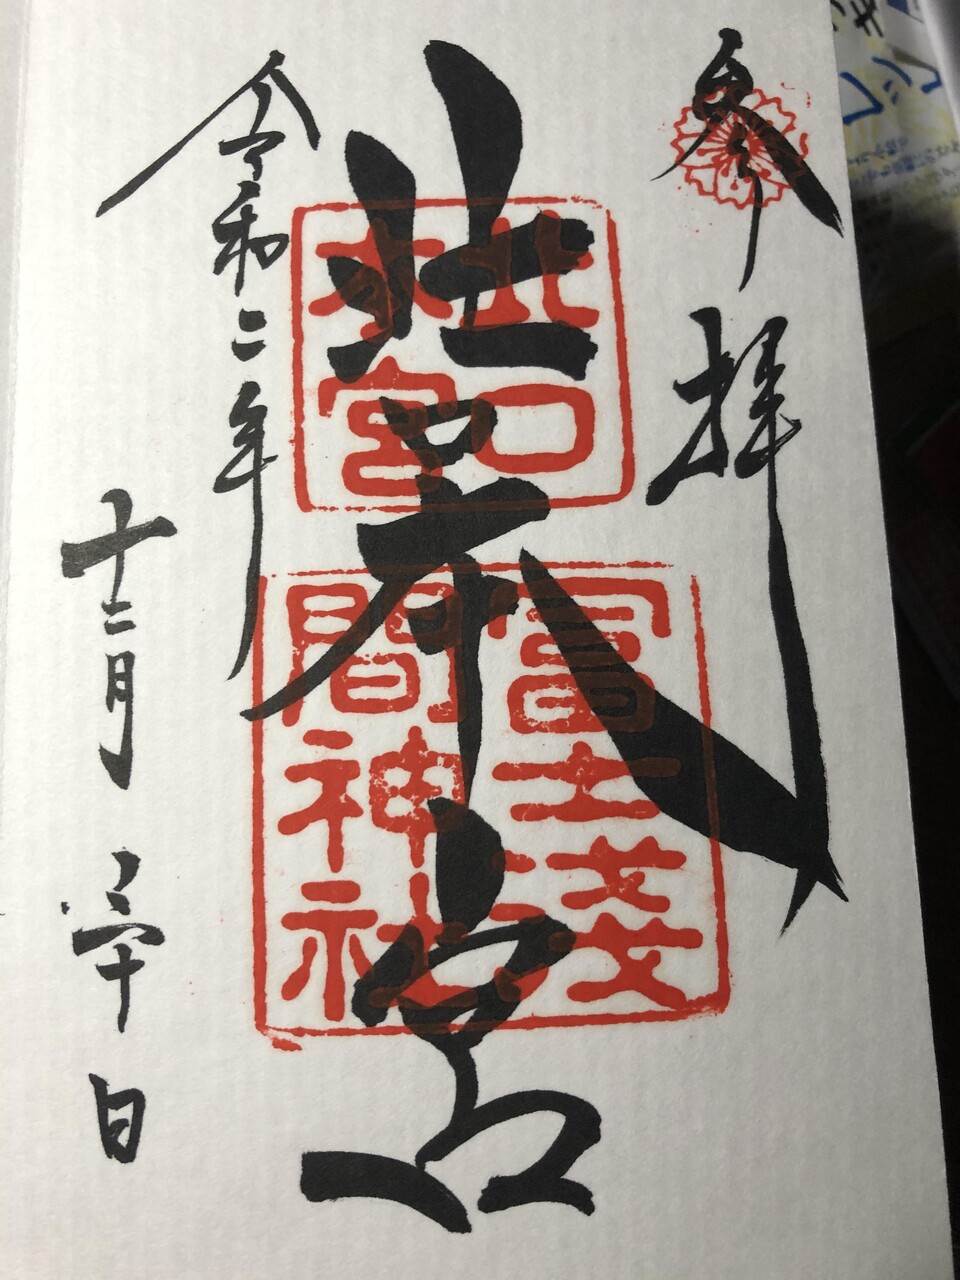 奉拝
北口本宮
令和二年
十二月三十日
北口
本宮
冨士淺
間神社